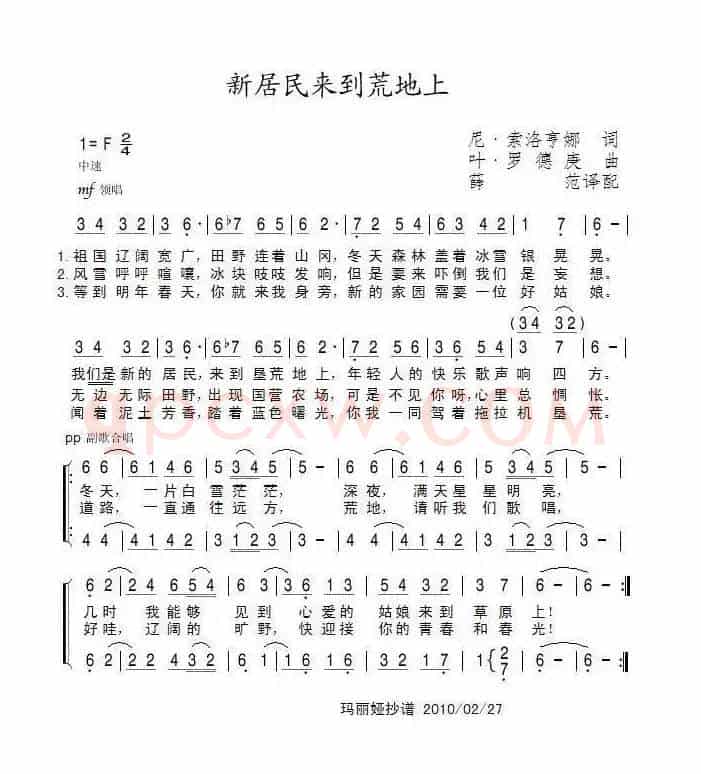 新居民来到荒地上
1= F 2/4
中速
mf 领唱
尼·索洛亨娜 词
叶·罗德庚 曲
薛 范译配
3 4 3 2 | 3 6 · | 6 ♭7 6 5 | 6 2 · | 7 2 5 4 | 5 6 5 4 | 3 2 4 2 | 1 7 | 6 - |
1. 祖国 辽阔 宽广，田野 连着 山冈，冬天 森林 盖着 冰雪 银 晃 晃。
2. 风雪 呼呼 喧嚷，冰块 吱吱 发响，但是 要来 吓倒 我们 是 妄 想。
3. 等到 明年 春天，你就 来我 身旁，新的 家园 需要 一位 好 姑 娘。
(3 4 3 2)
3 4 3 2 | 3 6 · | 6 ♭7 6 5 | 6 2 · | 7 2 5 4 | 3 2 1 6 | 3 4 3 2 | 1 7 | 6 - |
我们是 新的 居民，来到 垦荒 地上，年轻 人的 快乐 歌声 响 四 方。
无边 无际 田野，出现 国营 农场，可是 不见 你呀，心里 总 惆 怅。
闻着 泥土 芳香，踏着 蓝色 曙光，你我 一同 驾着 拖拉 机 垦 荒。
qpcxw.com
pp 副歌合唱
6 6 | 6 1 4 6 | 5 3 4 5 | 5 - | 5 5 | 5 6 1 5 | 5 3 4 5 | 5 - |
冬天， 一片白 雪茫 茫， 深夜， 满天星 星明 亮，
道路， 一直通 往远 方， 荒地， 请听我 们歌 唱，
4 4 | 4 1 4 4 | 3 1 2 3 | 3 - | 3 3 | 3 4 6 3 | 3 1 2 3 | 3 - |
6 2 | 2 4 6 5 4 | 6 3 | 3 6 1 3 | 5 4 3 2 | 3 2 1 7 | 6 - | 6 - :‖
几时 我能够 见到 心爱的 姑娘来到 草原 上！
好哇，辽阔的 旷野，快迎接 你的青春 和春 光！
6 2 | 2 2 4 3 2 | 6 3 | 3 3 6 1 | 2 2 1 7 | 1 2/7 | 6 - | 6 - :‖
玛丽娅抄谱 2010/02/27